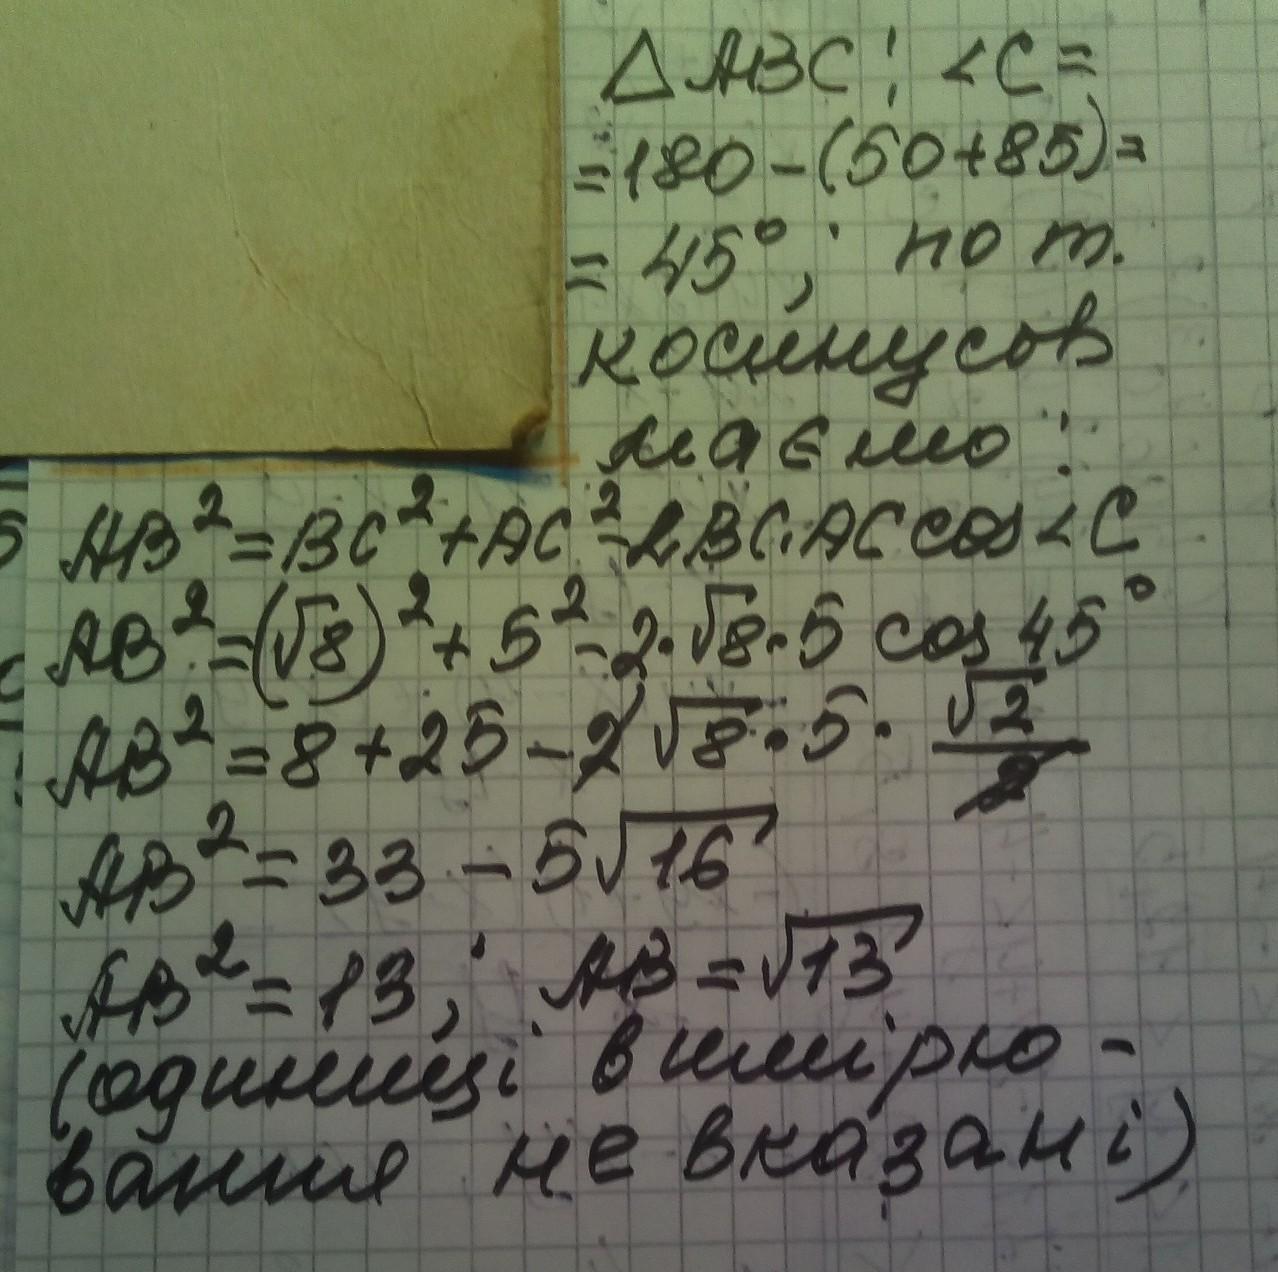 △ ABC: <C =
= 180 - (50 + 85) =
= 45°; по т.
косинусов
маємо:
AB² = BC² + AC² - 2BC·AC cos <C
AB² = (√8)² + 5² - 2·√8·5 cos 45°
AB² = 8 + 25 - 2√8·5· √2/2
AB² = 33 - 5√16
AB² = 13; AB = √13
(одиниці виміро-
вання не вказані)